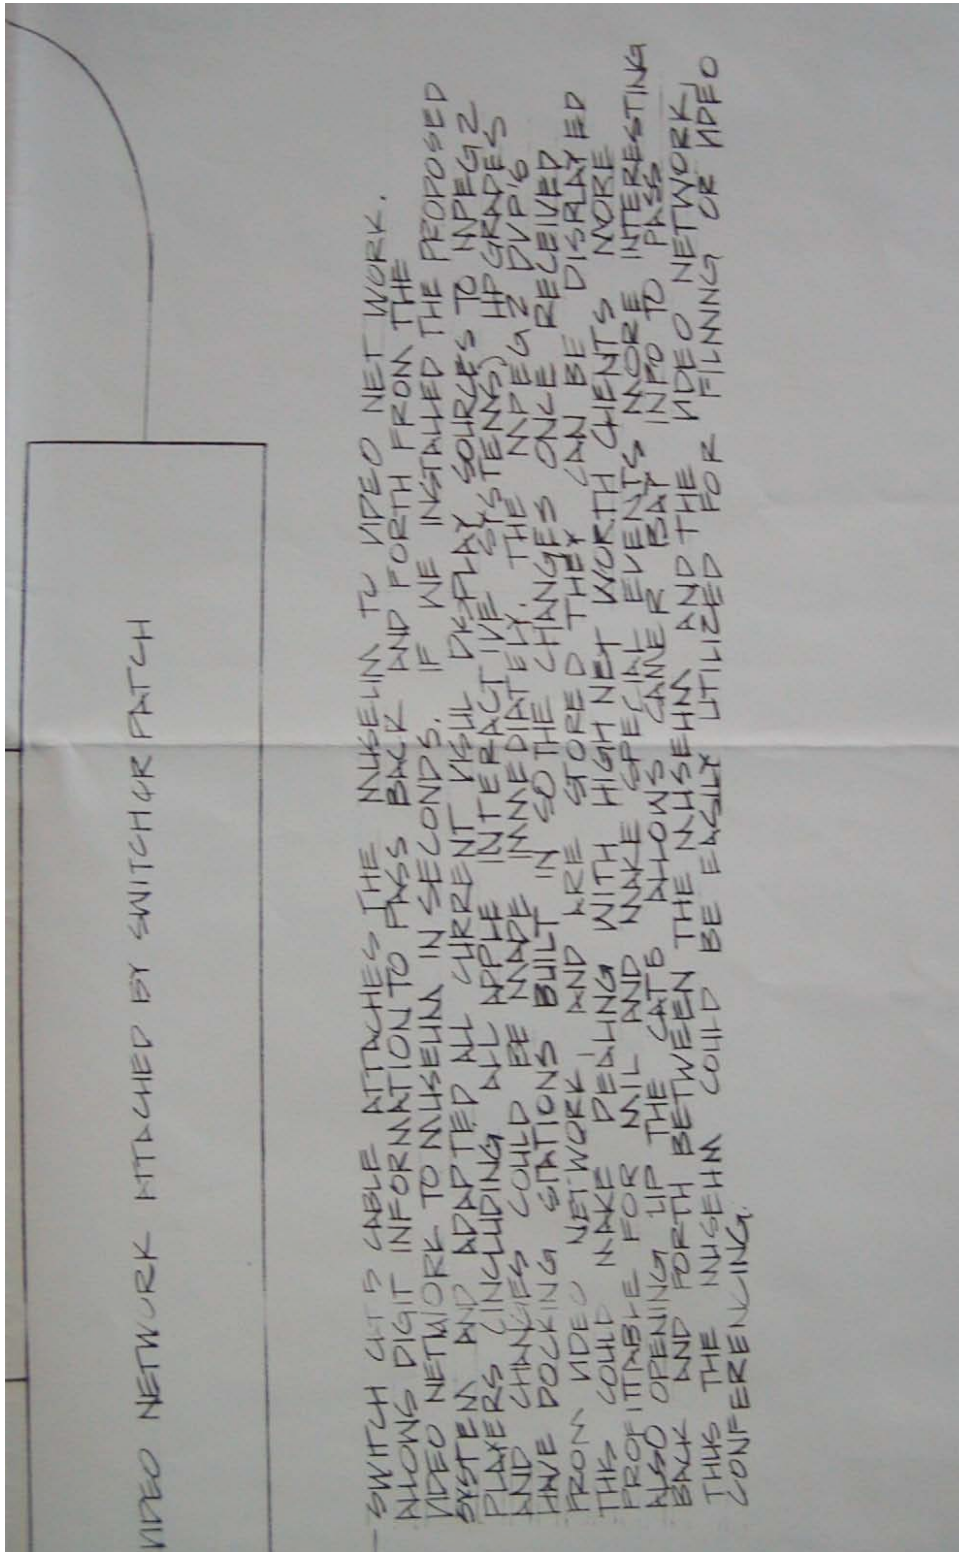 VIDEO NETWORK ATTACHED BY SWITCH OR PATCH
SWITCH CAT5 CABLE ATTACHES THE MUSEUM TO VIDEO NET WORK.
ALLOWS DIGIT INFORMATION TO PASS BACK AND FORTH FROM THE
VIDEO NETWORK TO MUSEUM IN SECONDS. IF WE INSTALLED THE PROPOSED
SYSTEM AND ADAPTED ALL CURRENT VISUL DISPLAY SOURCES TO MPEG2
PLAYERS (INCLUDING ALL APPLE INTERACTIVE SYSTEMS) UPGRADES
AND CHANGES COULD BE MADE IMMEDIATELY. THE MPEG2 DVP'S
HAVE DOCKING STATIONS BUILT IN SO THE CHANGES ONCE RECEIVED
FROM VIDEO NETWORK, AND ARE STORED THEY CAN BE DISPLAYED
THIS COULD MAKE DEALING WITH HIGH NET WORTH CLIENTS MORE
PROFITTABLE FOR MIL AND MAKE SPECIAL EVENTS MORE INTERESTING
ALSO OPENING UP THE CAT5 ALLOWS CAMER BAY INFO TO PASS
BACK AND FORTH BETWEEN THE MUSEUM AND THE VIDEO NETWORK,
THUS THE MUSEUM COULD BE EASILY UTILIZED FOR FILMNNG OR VIDEO
CONFERENCING.